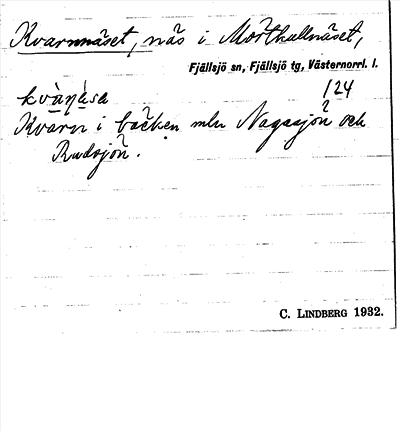 Kvarnnäset, näs i Mörtkullnäset,
Fjällsjö sn, Fjällsjö tg, Västernorrl. l.
124
Kvarn i bäcken mln Nagasjön och
Rudsjön.
C. LINDBERG 1932.